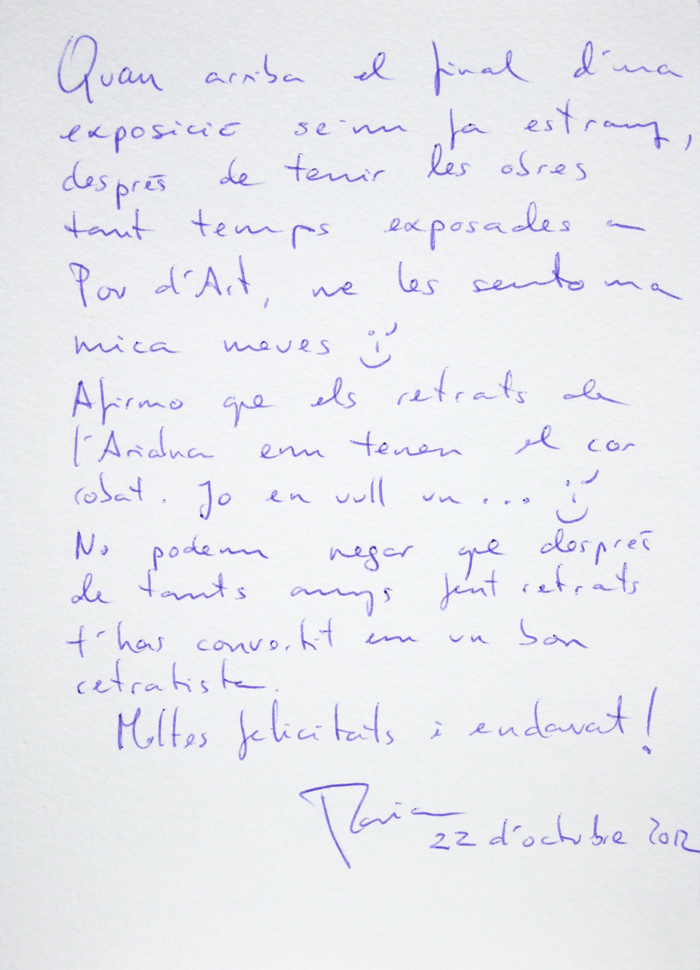 Quan arriba el final d'una
exposició se'm fa estrany,
després de tenir les obres
tant temps exposades a
Pou d'Art, ne les sento ma
mica meves
Afirmo que els retrats de
l'Ariadna em tenen el cor
robat. Jo en vull un...
No podem negar que després
de tants anys fent retrats
t'has convertit em un bon
retratista.
Moltes felicitats i endavat!
22 d'octubre 2012